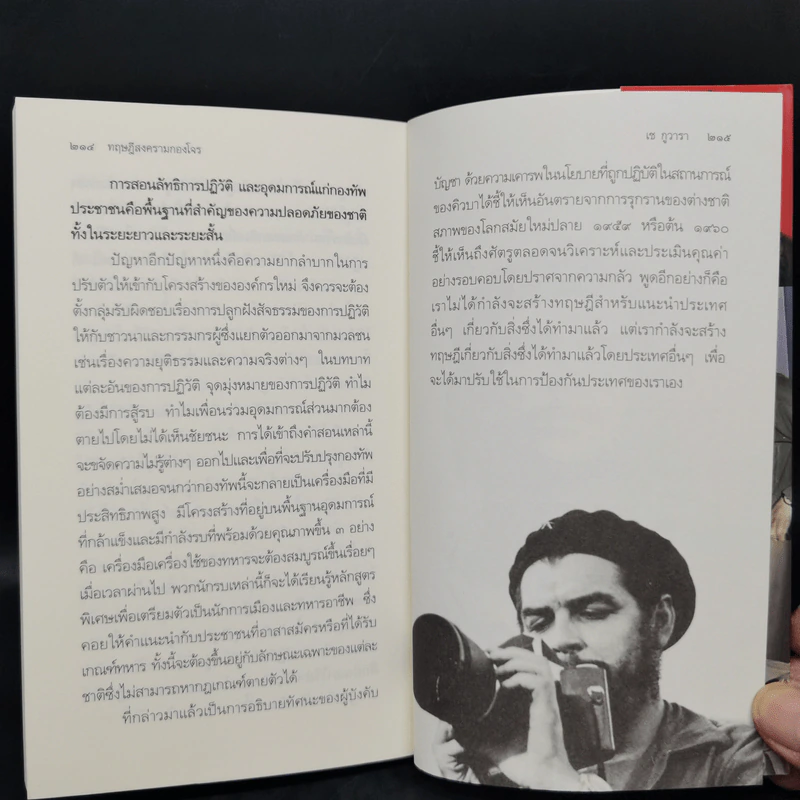 ๒๑๔ ทฤษฎีสงครามกองโจร
การสอนลัทธิการปฏิวัติ และอุดมการณ์แก่กองทัพ
ประชาชนคือพื้นฐานที่สำคัญของความปลอดภัยของชาติ
ทั้งในระยะยาวและระยะสั้น
ปัญหาอีกปัญหาหนึ่งคือความยากลำบากในการ
ปรับตัวให้เข้ากับโครงสร้างขององค์กรใหม่ จึงควรจะต้อง
ตั้งกลุ่มรับผิดชอบเรื่องการปลูกฝังสัจธรรมของการปฏิวัติ
ให้กับชาวนาและกรรมกรผู้ซึ่งแยกตัวออกมาจากมวลชน
เช่นเรื่องความยุติธรรมและความจริงต่างๆ ในบทบาท
แต่ละอันของการปฏิวัติ จุดมุ่งหมายของการปฏิวัติ ทำไม
ต้องมีการสู้รบ ทำไมเพื่อนร่วมอุดมการณ์ส่วนมากต้อง
ตายไปโดยไม่ได้เห็นชัยชนะ การได้เข้าถึงคำสอนเหล่านี้
จะขจัดความไม่รู้ต่างๆ ออกไปและเพื่อที่จะปรับปรุงกองทัพ
อย่างสม่ำเสมอจนกว่ากองทัพนี้จะกลายเป็นเครื่องมือที่มี
ประสิทธิภาพสูง มีโครงสร้างที่อยู่บนพื้นฐานอุดมการณ์
ที่กล้าแข็งและมีกำลังรบที่พร้อมด้วยคุณภาพขึ้น ๓ อย่าง
คือ เครื่องมือเครื่องใช้ของทหารจะต้องสมบูรณ์ขึ้นเรื่อยๆ
เมื่อเวลาผ่านไป พวกนักรบเหล่านี้ก็จะได้เรียนรู้หลักสูตร
พิเศษเพื่อเตรียมตัวเป็นนักการเมืองและทหารอาชีพ ซึ่ง
คอยให้คำแนะนำกับประชาชนที่อาสาสมัครหรือที่ได้รับ
เกณฑ์ทหาร ทั้งนี้จะต้องขึ้นอยู่กับลักษณะเฉพาะของแต่ละ
ชาติซึ่งไม่สามารถหากฎเกณฑ์ตายตัวได้
ที่กล่าวมาแล้วเป็นการอธิบายทัศนะของผู้บังคับ
เช กูวารา ๒๑๕
บัญชา ด้วยความเคารพในนโยบายที่ถูกปฏิบัติในสถานการณ์
ของคิวบาได้ชี้ให้เห็นอันตรายจากการรุกรานของต่างชาติ
สภาพของโลกสมัยใหม่ปลาย ๑๙๕๙ หรือต้น ๑๙๖๐
ชี้ให้เห็นถึงศัตรูตลอดจนวิเคราะห์และประเมินคุณค่า
อย่างรอบคอบโดยปราศจากความกลัว พูดอีกอย่างก็คือ
เราไม่ได้กำลังจะสร้างทฤษฎีสำหรับแนะนำประเทศ
อื่นๆ เกี่ยวกับสิ่งซึ่งได้ทำมาแล้ว แต่เรากำลังจะสร้าง
ทฤษฎีเกี่ยวกับสิ่งซึ่งได้ทำมาแล้วโดยประเทศอื่นๆ เพื่อ
จะได้มาปรับใช้ในการป้องกันประเทศของเราเอง